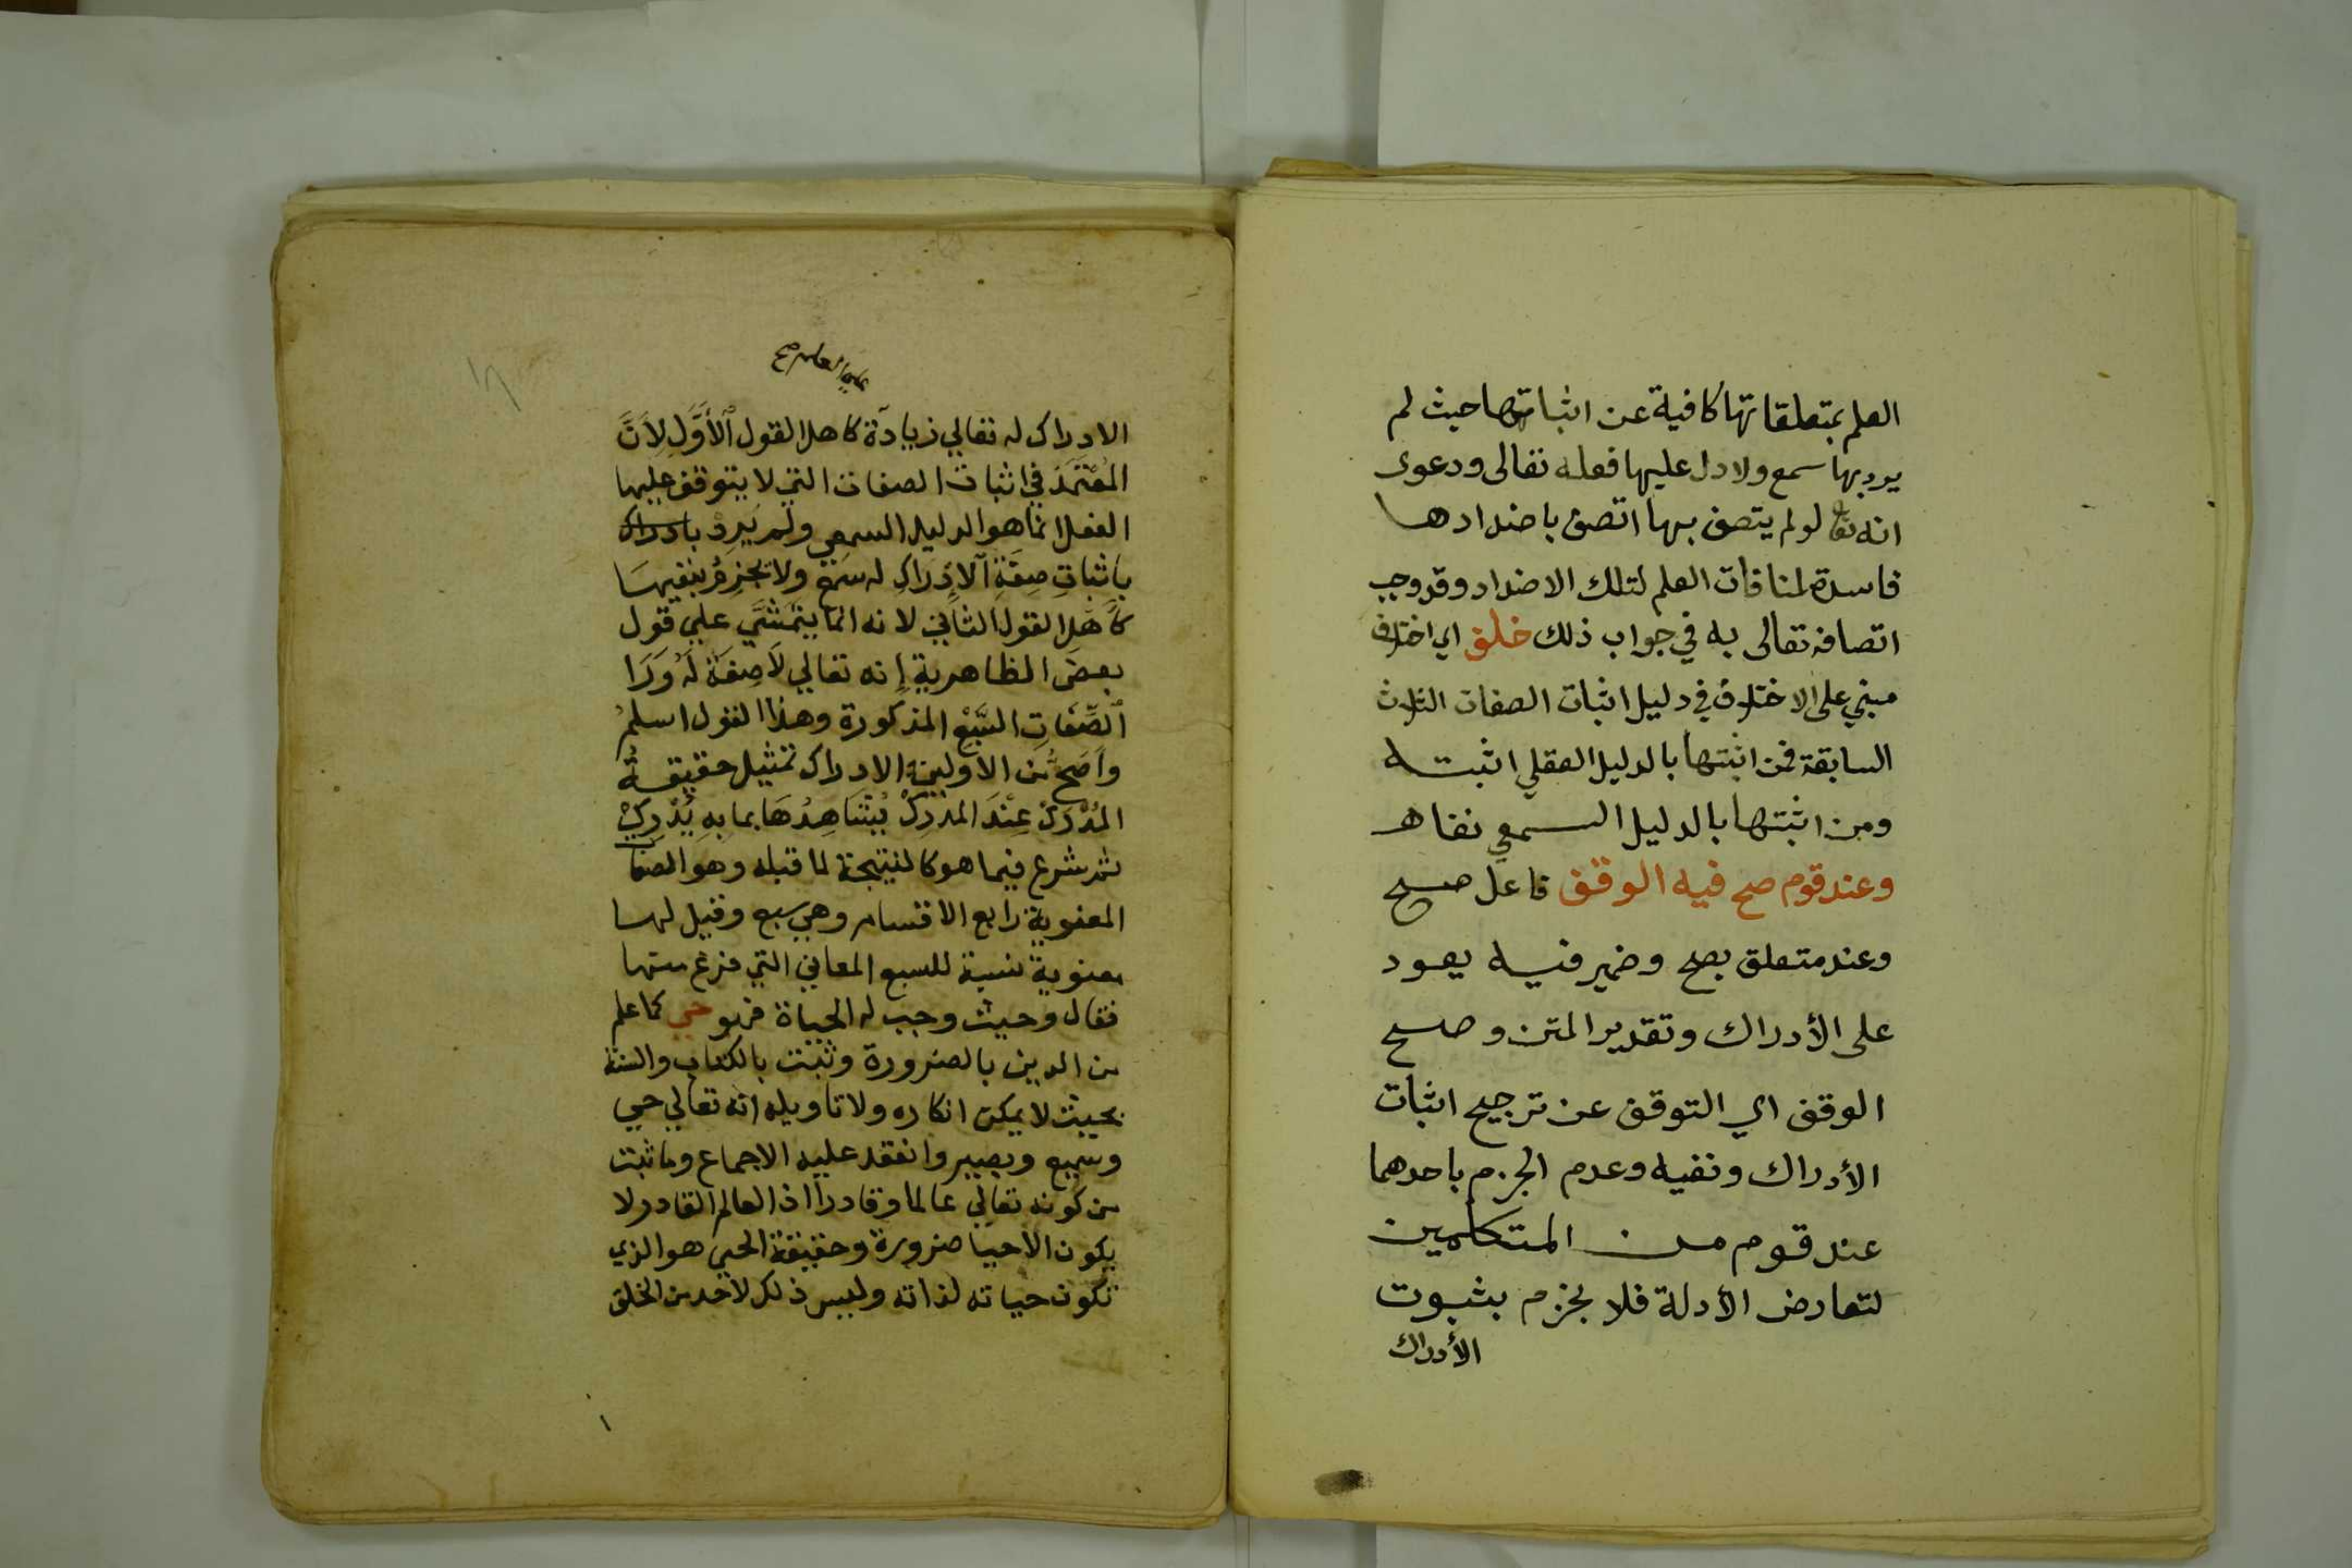 العلم بمتعلقاتها كافية عن اثباتها حيث لم
يرد بها سمع ولا دل عليها فعله تعالى ودعوى
انه تعا لو لم يتصف بها اتصف باضدادها
فاسدة لمنافات العلم لتلك الاضداد وقد وجب
اتصافه تعالى به في جواب ذلك خلف اي اختلاف
مبني على الاختلاف في دليل اثبات الصفات الثلاث
السابقة فمن اثبتها بالدليل العقلي اثبته
ومن اثبتها بالدليل السمعي نفاه
وعند قوم صح فيه الوقف فاعل صح
وعند متعلق بصح وضمير فيه يعود
على الأدراك وتقدير المتن وصح
الوقف اي التوقف عن ترجيح اثبات
الأدراك ونفيه وعدم الجزم باحدهما
عند قوم من المتكلمين
لتعارض الأدلة فلا يجزم بثبوت
الأدراك
علي العلم صح
الادراك له تعالي زيادة كاهل القول الأَوَّلِ لِأَنَّ
المُعْتَمَدَ في اثبات الصفات التي لا يتوقف عليها
الفعل انما هو الدليل السمعي ولم يَرِدْ بادراك
باثباتِ صِفَةِ الإدراكِ له سَمْعٌ ولا يجزِمُ بنفيها
كأَهْلِ القول الثاني لانه انما يَتَمَشَّي علي قول
بعض الظاهرية إنه تعالي لاَ صِفَةَ لَهُ وَرَا
الصِّفَاتِ السَّبْعِ المذكورة وهذا القول اسلمُ
وأَصَحُّ من الأولين والادراك تمثيل حقيقة
المُدْرَكِ عِنْدَ المدْرِكِ يُشَاهِدُهَا بما بِهِ يُدْرِكُ
ثم شرع فيما هو كالنتيجة لما قبله وهو الصفات
المعنوية رابع الاقسام وهي سبع وقيل لها
معنوية نسبة للسبع المعاني التي فرغ منها
فقال وحيث وجب له الحياة فهو حي كما علم
من الدين بالضرورة وثبت بالكتاب والسنة
بحيث لا يمكن انكاره ولا تاويله انه تعالي حي
وسميع وبصير وانعقد عليه الاجماع وما ثبت
من كونه تعالي عالما وقادرا اذ العالم القادر لا
يكون الاحيا ضرورة وحقيقة الحي هو الذي
تكون حياته لذاته وليس ذلك لاحد من الخلق